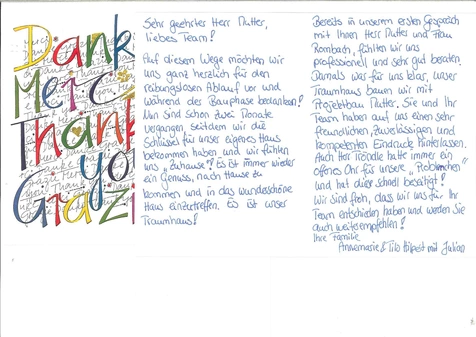 Danke
Merci
Thank
you
Grazi
Sehr geehrter Herr Nutter,
liebes Team!
Auf diesem Wege möchten wir
uns ganz herzlich für den
reibungslosen Ablauf vor und
während der Bauphase bedanken!
Nun sind schon zwei Monate
vergangen, seitdem wir die
Schlüssel für unser eigenes Haus
bekommen haben und wir fühlen
uns „Zuhause“! Es ist immer wieder
ein Genuss, nach Hause zu
kommen und in das wunderschöne
Haus einzutreten. Es ist unser
Traumhaus!
Bereits in unserem ersten Gespräch
mit Ihnen Herr Nutter und Frau
Rombach, fühlten wir uns
professionell und sehr gut beraten.
Damals war für uns klar, unser
Traumhaus bauen wir mit
Projektbau Nutter. Sie und Ihr
Team haben auf uns einen sehr
freundlichen, zuverlässigen und
kompetenten Eindruck hinterlassen.
Auch Herr Tröndle hatte immer ein
offenes Ohr für unsere „Problemchen“
und hat diese schnell beseitigt!
Wir sind froh, dass wir uns für Ihr
Team entschieden haben und werden Sie
auch weiterempfehlen!
Ihre Familie
Annemarie & Tilo mit Julian